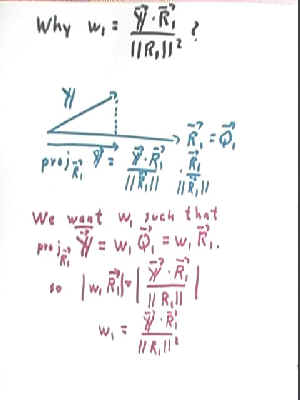 Why w₁ = (Y⃗ · R⃗₁) / ||R₁||² ?
Y
R⃗₁ = Q⃗₁
proj_R⃗₁ Y⃗ = (Y⃗ · R⃗₁) / ||R⃗₁|| · R⃗₁ / ||R⃗₁||
We want w₁ such that
proj_R⃗₁ Y⃗ = w₁ Q⃗₁ = w₁ R⃗₁.
so |w₁ R⃗₁| = | (Y⃗ · R⃗₁) / ||R₁|| |
w₁ = (Y⃗ · R⃗₁) / ||R₁||²